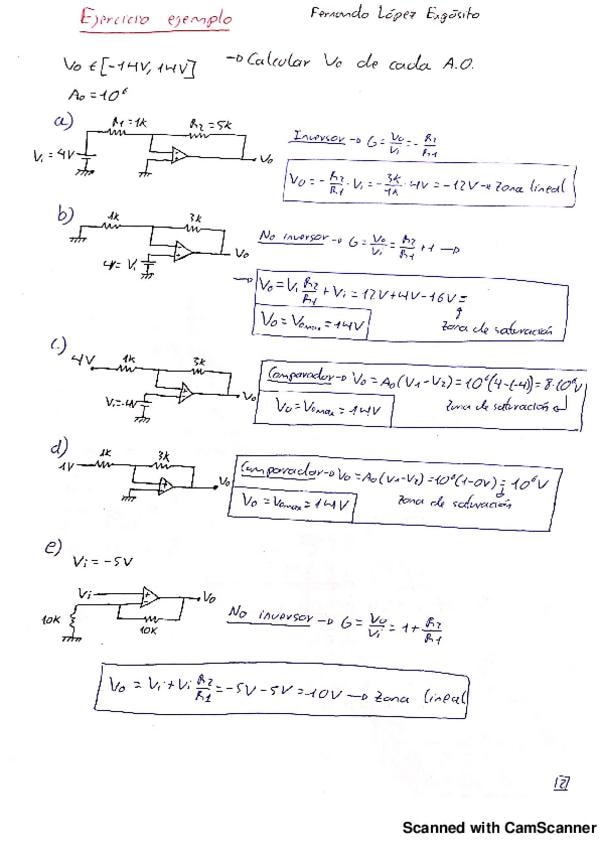 Ejercicio ejemplo
Fernando López Expósito
Vo ∈ [-14V, 14V] → Calcular Vo de cada A.O.
Ao = 10⁶
a)
R1 = 1k
R2 = 5k
Vi = 4V
Vo
Inversor → G = Vo/Vi = - R2/R1
Vo = - R2/R1 · Vi = - 3k/1k · 4V = -12V → Zona lineal
b)
1k
3k
4V = Vi
Vo
No inversor → G = Vo/Vi = R2/R1 + 1 →
→ Vo = Vi R2/R1 + Vi = 12V + 4V = 16V =
Zona de saturación
Vo = Vomax = 14V
c.)
4V
1k
3k
Vi = -4V
Vo
Comparador → Vo = Ao (V1 - V2) = 10⁶ (4 - (-4)) = 8·10⁶V
Zona de saturación
Vo = Vomax = 14V
d)
1V
1k
3k
Vo
Comparador → Vo = Ao (V1 - V2) = 10⁶ (1 - 0V) = 10⁶V
Zona de saturación
Vo = Vomax = 14V
e)
Vi = -5V
Vi
Vo
10k
10k
No inversor → G = Vo/Vi = 1 + R2/R1
Vo = Vi + Vi R2/R1 = -5V - 5V = 10V → Zona lineal
Scanned with CamScanner